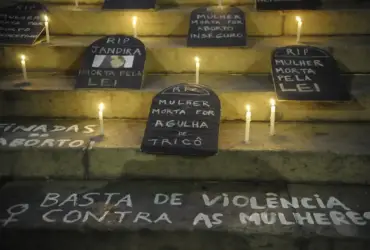 MULHER
MORTA
RIP
MULHER
MORTA POR
ABORTO
INSEGURO
RIP
JANDIRA
MORTA PELA
LEI
RIP
MULHER
MORTA PELA
LEI
RIP
MULHER
MORTA POR
AGULHA
DE
TRICÔ
INADAS
ABORTO!
BASTA DE VIOLÊNCIA
♀ CONTRA AS MULHERES